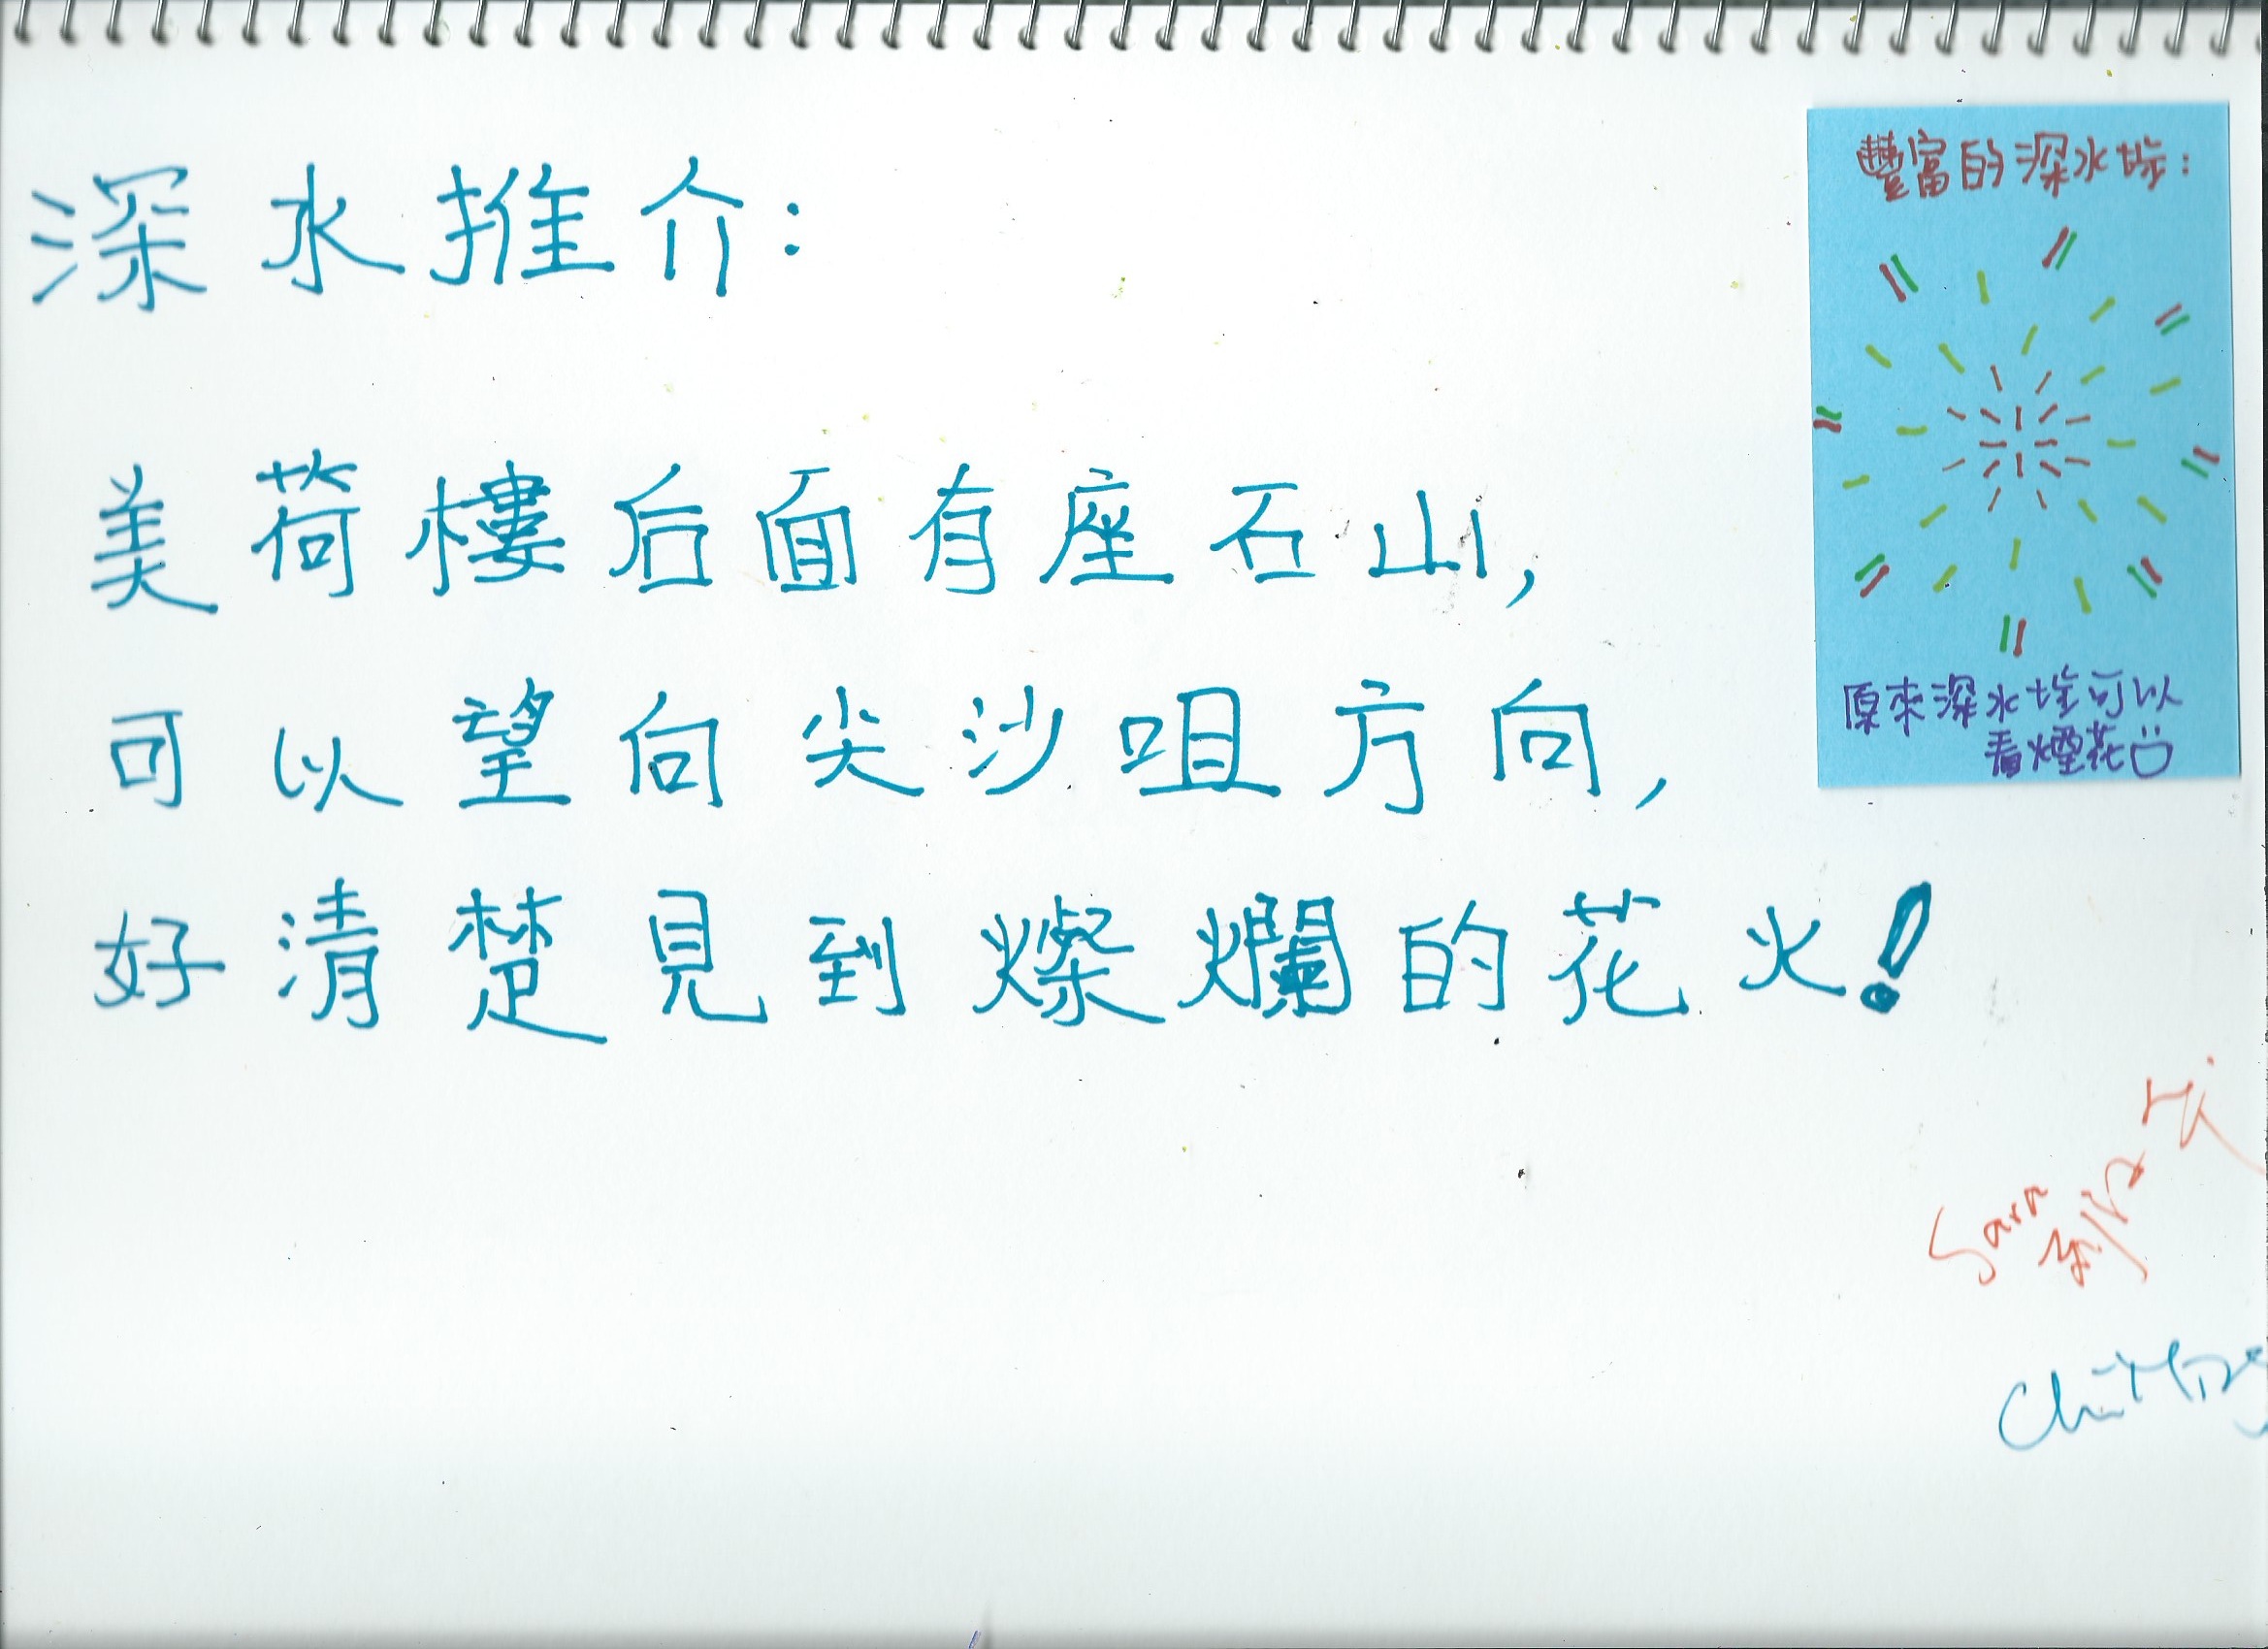 深水推介：
美荷樓后面有座石山，
可以望向尖沙咀方向，
好清楚見到燦爛的花火！
豐富的深水埗：
原來深水埗可以
看煙花
Sara